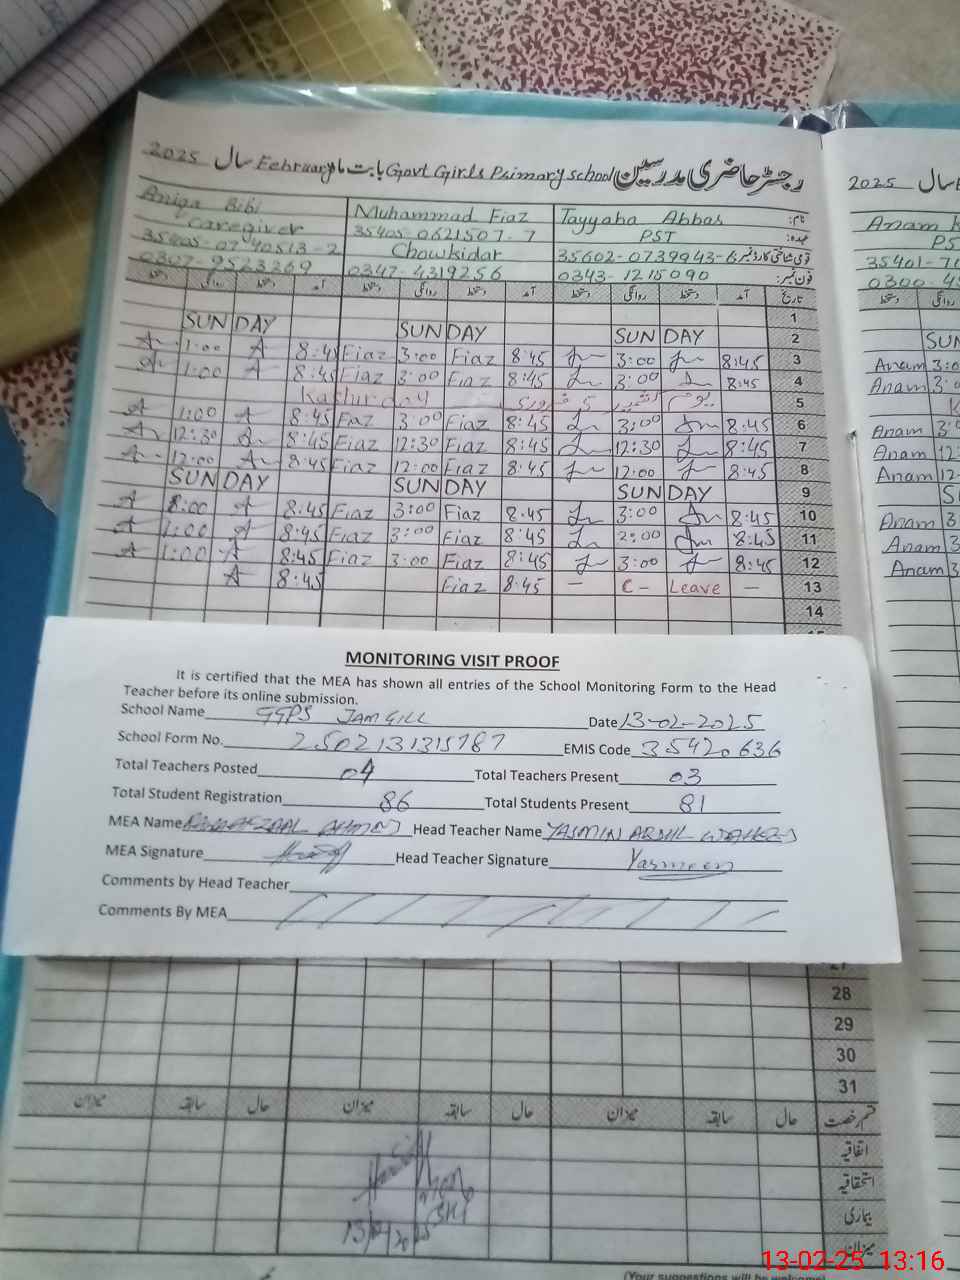 رجسٹر حاضری مدرسین Govt Girls Primary School بابت ماہ February سال 2025
2025 سال
نام: Tayyaba Abbas Muhammad Fiaz Aniqa Bibi
عہدہ: PST 35405-0621507-7 Caregiver
قومی شناختی کارڈ نمبر: 35602-0739943-6 Chowkidar 35405-0740513-2
فون نمبر: 0343-1215090 0347-4319256 0307-9523369
Anam
PS
35401-70
0300-45
تاریخ آمد دستخط روانگی دستخط آمد دستخط روانگی دستخط آمد دستخط روانگی دستخط
1
SUNDAY SUNDAY SUNDAY 2
1:00 A 8:45 Fiaz 3:00 Fiaz 8:45 3:00 8:45 3
1:00 A 8:45 Fiaz 3:00 Fiaz 8:45 3:00 8:45 4
Kashur day یوم کشمیر 5 فروری 5
A 1:00 A 8:45 Fiaz 3:00 Fiaz 8:45 3:00 8:45 6
12:30 8:45 Fiaz 12:30 Fiaz 8:45 12:30 8:45 7
12:00 8:45 Fiaz 12:00 Fiaz 8:45 12:00 8:45 8
SUNDAY SUNDAY SUNDAY 9
A 8:00 A 8:45 Fiaz 3:00 Fiaz 8:45 3:00 8:45 10
A 1:00 A 8:45 Fiaz 3:00 Fiaz 8:45 2:00 8:45 11
A 1:00 A 8:45 Fiaz 3:00 Fiaz 8:45 3:00 8:45 12
A 8:45 Fiaz 8:45 — C- Leave — 13
14
SUN
Anam 3:0
Anam 3:
Anam 3:
Anam 12:
Anam 12-
Anam 3
Anam 3
Anam 3
MONITORING VISIT PROOF
It is certified that the MEA has shown all entries of the School Monitoring Form to the Head
Teacher before its online submission.
School Name GGPS JAMGILL Date 13-02-2025
School Form No. 2502131315787 EMIS Code 35420636
Total Teachers Posted 04 Total Teachers Present 03
Total Student Registration 86 Total Students Present 81
MEA Name AHMED Head Teacher Name YASMIN ABDUL WAHEED
MEA Signature Head Teacher Signature Yasmeen
Comments by Head Teacher
Comments By MEA
27
28
29
30
31
قسم رخصت حال سابقہ میزان حال سابقہ میزان حال سابقہ میزان
اتفاقیہ
استحقاقیہ
بیماری
میزان
(Your suggestions will be welcome
13-02-25 13:16